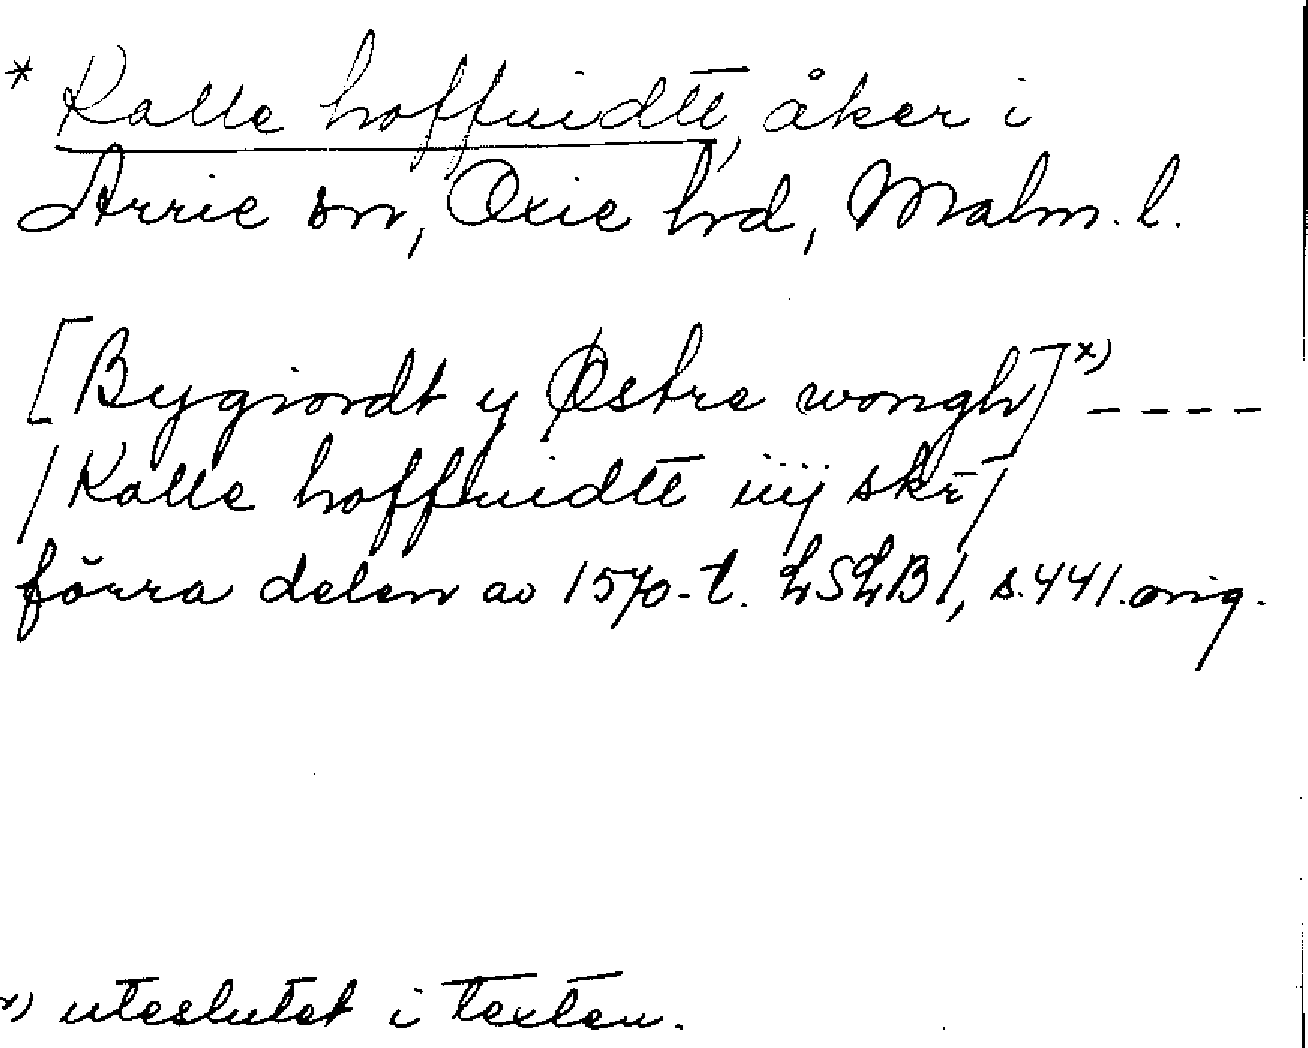 * Kalle hoffuidtt, åker i
Arrie sn, Oxie hd, Malm. l.
[Bygiordt y Østre wongh] x) ----
/Kalle hoffuidtt iiij skr̄/
förra delen av 1570-t. LSLB I, s. 441. orig.
x) uteslutet i texten.